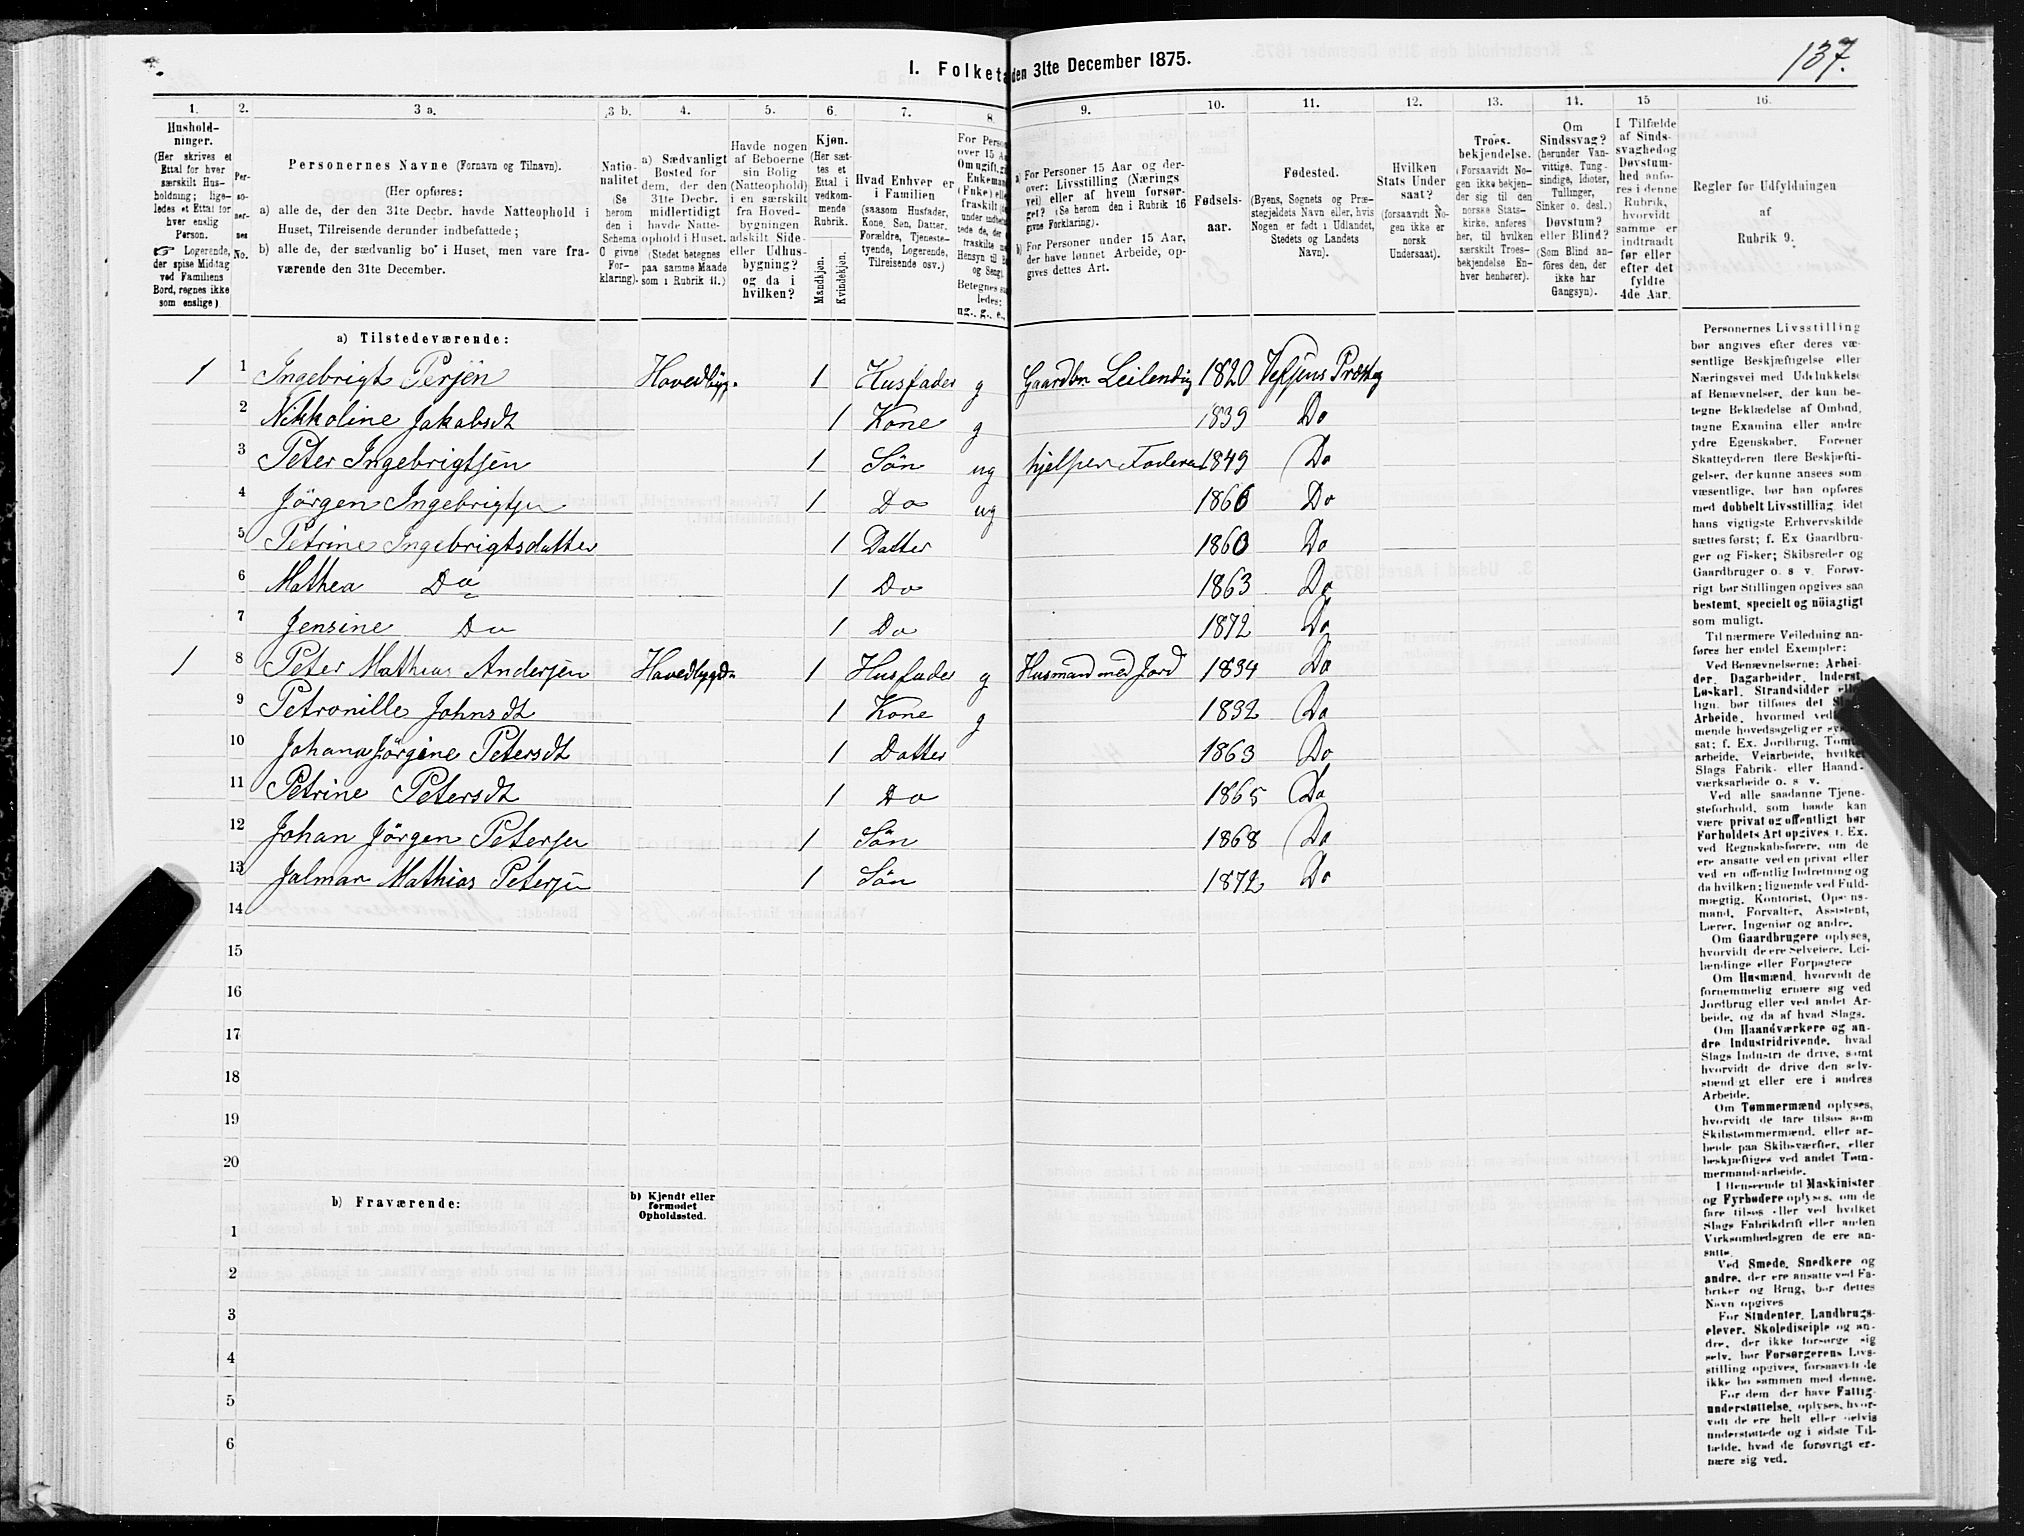 137.
I. Folketa den 31te December 1875.
1. 2. 3 a. 3 b. 4. 5. 6. 7. 8. 9. 10. 11. 12. 13. 14. 15 16.
Hushold-
ninger.
(Her skrives et
Ettal for hver
særskilt Hus-
holdning; lige-
ledes et Ettal for
hver enslig
Person.
☞ Logerende,
der spise Middag
ved Familiens
Bord, regnes ikke
som enslige).
Per-
so-
ner-
nes
No.
Personernes Navne (Fornavn og Tilnavn).
(Her opføres:
a) alle de, der den 31te Decbr. havde Natteophold i
Huset, Tilreisende derunder indbefattede;
b) alle de, der sædvanlig bo' i Huset, men vare fra-
værende den 31te December.
Natio-
nalitet
(Se
herom
den i
Schema
C givne
For-
klaring).
a) Sædvanligt
Bosted for
dem, der den
31te Decbr.
midlertidigt
havde Natte-
ophold i Huset.
(Stedet betegnes
paa samme Maade
som i Rubrik 11.)
Havde nogen
af Beboerne
sin Bolig
(Natteophold)
i en særskilt
fra Hoved-
bygningen
adskilt Side-
eller Udhus-
bygning?
og da i
hvilken?
Kjøn.
(Her sæt-
tes et
Ettal i
vedkom-
mende
Rubrik.
Mandkjøn.
Kvindekjøn.
Hvad Enhver er
i Familien
(saasom Husfader,
Kone, Søn, Datter,
Forældre, Tjeneste-
tyende, Logerende,
Tilreisende osv.)
For Perso
over 15 A
Om ugift, g
Enkeman
(Fuke) ell
fraskilt
under indbe
tede de, der
fraskilte
Hensyn til B
og Seng).
Betegnes s
ledes:
ug., g., e.,
a) For Personer 15 Aar og der-
over: Livsstilling (Nærings
vei) eller af hvem forsør-
get? (Se herom den i Rubrik 16
givne Forklaring).
b) For Personer under 15 Aar,
der have lønnet Arbeide, op-
gives dettes Art.
Fødsels-
aar.
Fødested.
(Byens, Sognets og Præ-
stegjeldets Navn eller, hvis
Nogen er født i Udlandet,
Stedets og Landets
Navn).
Hvilken
Stats Under
saat?
(forsaavidt No-
gen ikke er
norsk
Undersaat).
Troes-
bekjendelse.
(Forsaavidt No-
gen ikke bekjen-
der sig til den
norske Stats-
kirke, anføres
her, til hvilken
særskilt Troes-
bekjendelse En-
hver henhører).
Om
Sindssvag?
(herunder Van-
vittige, Tung-
sindige, Idioter,
Tullinger,
Sinker o. desl.)
Døvstum?
eller Blind?
(Som Blind an-
føres den, der
ikke har
Gangsyn).
I Tilfælde
af Sinds-
svaghed og
Døvstum-
hed anfø-
res i denne
Rubrik,
hvorvidt
samme er
indtraadt
før eller
efter det
fyldte
4de Aar.
Regler for Udfyldningen
af
Rubrik 9.
a) Tilstedeværende:
1 1 Ingebrigt Persen Hovedbyg. 1 Husfader g Gaardbr Leilending 1820 Vefsens Præsteg
2 Nikkoline Jakobsdt 1 Kone g 1839 Do
3 Peter Ingebrigtsen 1 Søn ug hjelper Faderen 1849 Do
4 Jörgen Ingebrigtsn 1 Do ug 1860 Do
5 Petrine Ingebrigtsdatter 1 Datter 1860 Do
6 Mathea Do 1 Do 1863 Do
7 Jensine Do 1 Do 1872 Do
1 8 Peter Mathias Andersen Hovedbygd. 1 Husfader g Husmand med Jord 1834 Do
9 Petronille Johnsdt 1 Kone g 1832 Do
10 Johana Jörgine Petersdt 1 Datter 1863 Do
11 Petrine Petersdt 1 Do 1865 Do
12 Johan Jörgen Petersn 1 Søn 1868 Do
13 Jalmar Mathias Petersn 1 Søn 1872 Do
14
15
16
17
18
19
20
b) Fraværende:
b) Kjendt eller
formodet
Opholdssted.
1
2
3
4
5
6
Personernes Livsstilling
bør angives efter deres væ-
sentlige Beskjæftigelse eller
Næringsvei med Udelukkelse
af Benævnelser, der kun be-
tegne Beklædelse af Ombud,
tagne Examina eller andre
ydre Egenskaber. Forener
Skatteyderen flere Beskjæfti-
gelser, der kunne ansees som
væsentlige, bør han opføres
med dobbelt Livsstilling, idet
hans vigtigste Erhvervskilde
sættes først; f. Ex Gaardbru-
ger og Fisker; Skibsreder og
Gaardbruger o. s v. Forøv-
rigt bør Stillingen opgives saa
bestemt, specielt og nöiagtigt
som muligt.
Til nærmere Veiledning an-
føres her endel Exempler:
Ved Benævnelserne: Arbei-
der, Dagarbeider, Inderst,
Løskarl, Strandsidder
lign. bør tilføies det
Arbeide, hvormed
mende hovedsagelig er
sat; f. Ex. Jordbrug,
arbeide, Veiarbeide, hvilket
Slags Fabrik- eller Haand-
værksarbeide o. s v.
Ved alle saadanne Tjene-
steforhold, som baade kan
være privat og offentligt bør
Forholdets Art opgives, f. Ex.
ved Regnskabsførere, om de
ere ansatte ved en privat eller
ved en offentlig Indretning og
da hvilken; lignende ved Fuld-
mægtig, Kontorist, Opsyns-
mand, Forvalter, Assistent,
Lærer, Ingeniør og andre.
Om Gaardbrugere oplyses,
hvorvidt de ere Selveiere, Lei-
lændinge eller Forpagtere
Om Husmænd, hvorvidt de
fornemmelig ernære sig ved
Jordbrug eller ved andet Ar-
beide, og da af hvad Slags.
Om Haandværkere og an-
dre Industridrivende, hvad
Slags Industri de drive, samt
hvorvidt de drive den selv-
stændigt eller ere i andres
Arbeide.
Om Tømmermænd oplyses,
hvorvidt de fare tilsøs som
Skibstømmermænd, eller ar-
beide paa Skibsværfter, eller
beskjæftiges ved andet Tøm-
mermandsarbeide.
I Henseende til Maskinister
og Fyrbødere oplyses, om de
fare tilsøs eller ved hvilket
Slags Fabrikdrift eller anden
Virksomhedsgren de ere an-
satte.
Ved Smede, Snedkere og
andre, der ere ansatte ved Fa-
briker og Brug, bør dettes
Navn opgives
For Studenter, Landbrugs-
elever, Skoledisciple og an-
dre, der ikke forsørge sig
selv, bør Forsørgerens Livs-
stilling opgives, forsaavidt de
ikke bo sammen med denne.
For dem der have Fattig-
understøttelse, oplyses, hvor-
vidt de ere helt eller delvis
understøttede og i sidste Til-
fælde, hvad de forøvrigt er-
nære sig ved.